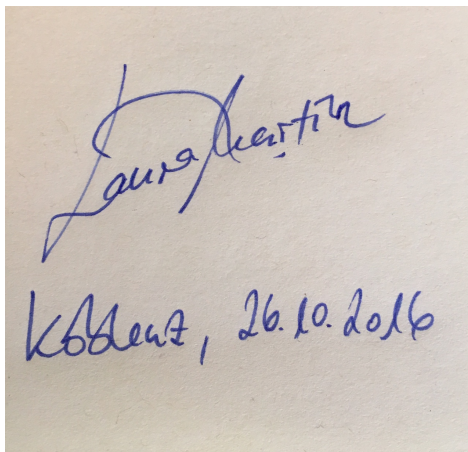 Laura Martin
Koblenz, 26.10.2016